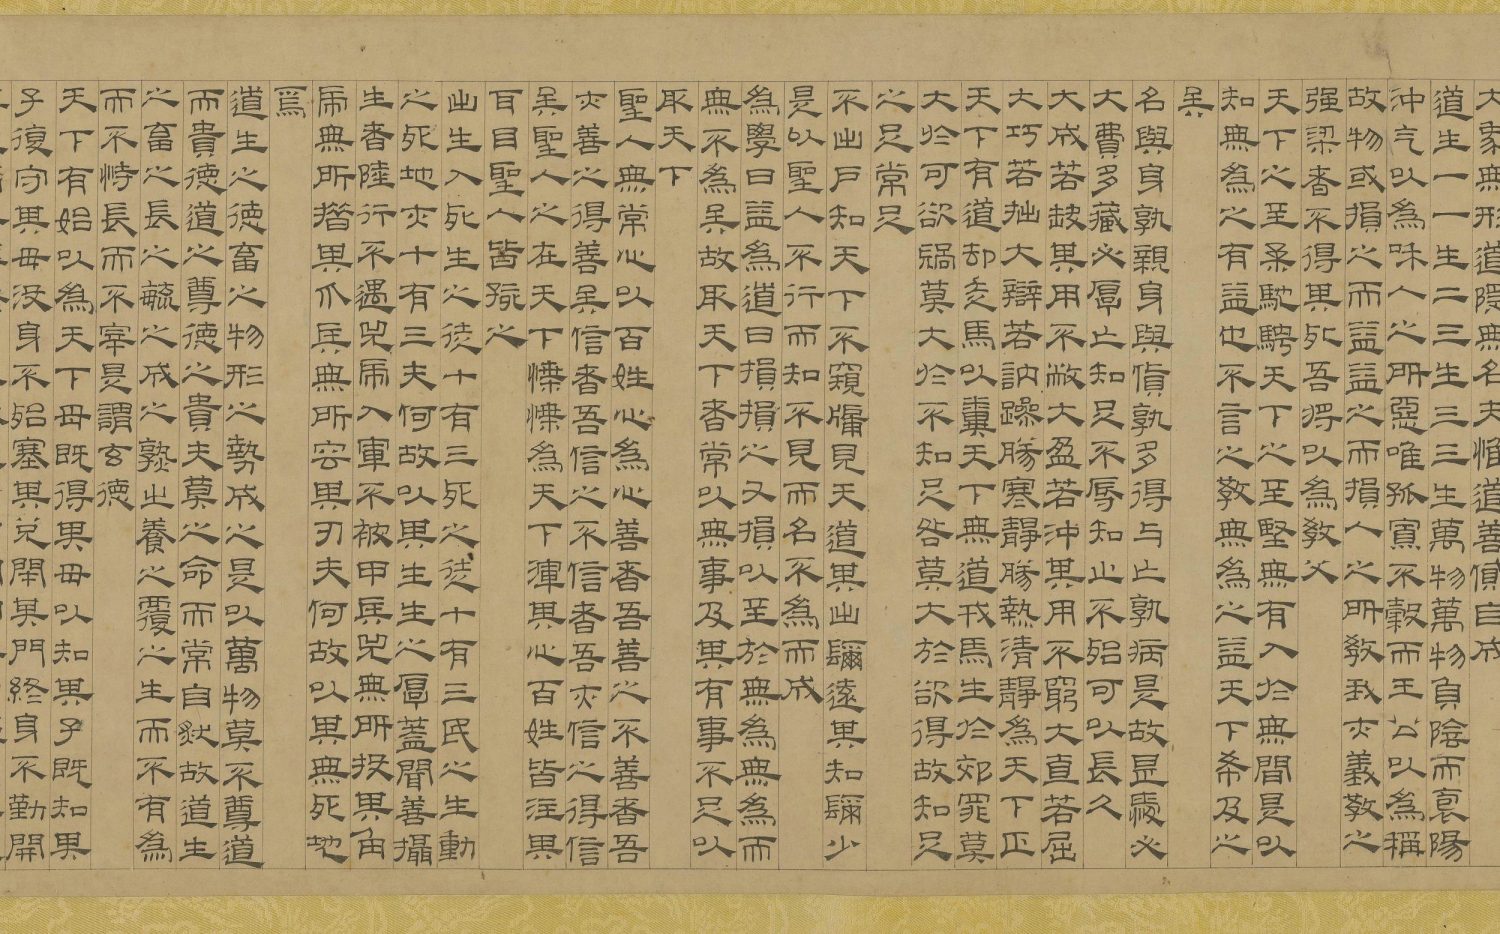 大象無形道隱無名夫惟道善貸自成
道生一一生二二生三三生萬物萬物負陰而裒陽
沖气以為咊人之所惡唯孤寡不轂而王公以為稱
故物或損之而益益之而損人之所教我亦義教之
强梁者不得其死吾將以為教父
天下之至柔馳騁天下之至堅無有入於無間是以
知無為之有益也不言之教無為之益天下希及之
矣
名與身孰親身與貨孰多得与亡孰病是故甚愛必
大費多藏必厚亡知足不辱知止不殆可以長久
大成若缺其用不敝大盈若沖其用不窮大直若屈
大巧若拙大辯若訥躁勝寒靜勝熱清靜為天下正
天下有道却走馬以糞天下無道戎馬生於郊罪莫
大於可欲禍莫大於不知足咎莫大於欲得故知足
之足常足
不出戶知天下不窺牖見天道其出彌遠其知彌少
是以聖人不行而知不見而名不為而成
為學日益為道日損損之又損以至於無為無為而
無不為矣故取天下者常以無事及其有事不足以
取天下
聖人無常心以百姓心為心善者吾善之不善者吾
亦善之得善矣信者吾信之不信者吾亦信之得信
矣聖人之在天下惵惵為天下渾其心百姓皆注其
耳目聖人皆孩之
出生入死生之徒十有三死之徒十有三民之生動
之死地亦十有三夫何故以其生生之厚蓋聞善攝
生者陸行不遇兕虎入軍不被甲兵兕無所投其角
虎無所措其爪兵無所容其刃夫何故以其無死地
焉
道生之德畜之物形之勢成之是以萬物莫不尊道
而貴德道之尊德之貴夫莫之命而常自然故道生
之畜之長之毓之成之熟之養之覆之生而不有為
而不恃長而不宰是謂玄德
天下有始以為天下母既得其母以知其子既知其
子復守其母沒身不殆塞其兌閉其門終身不勤開